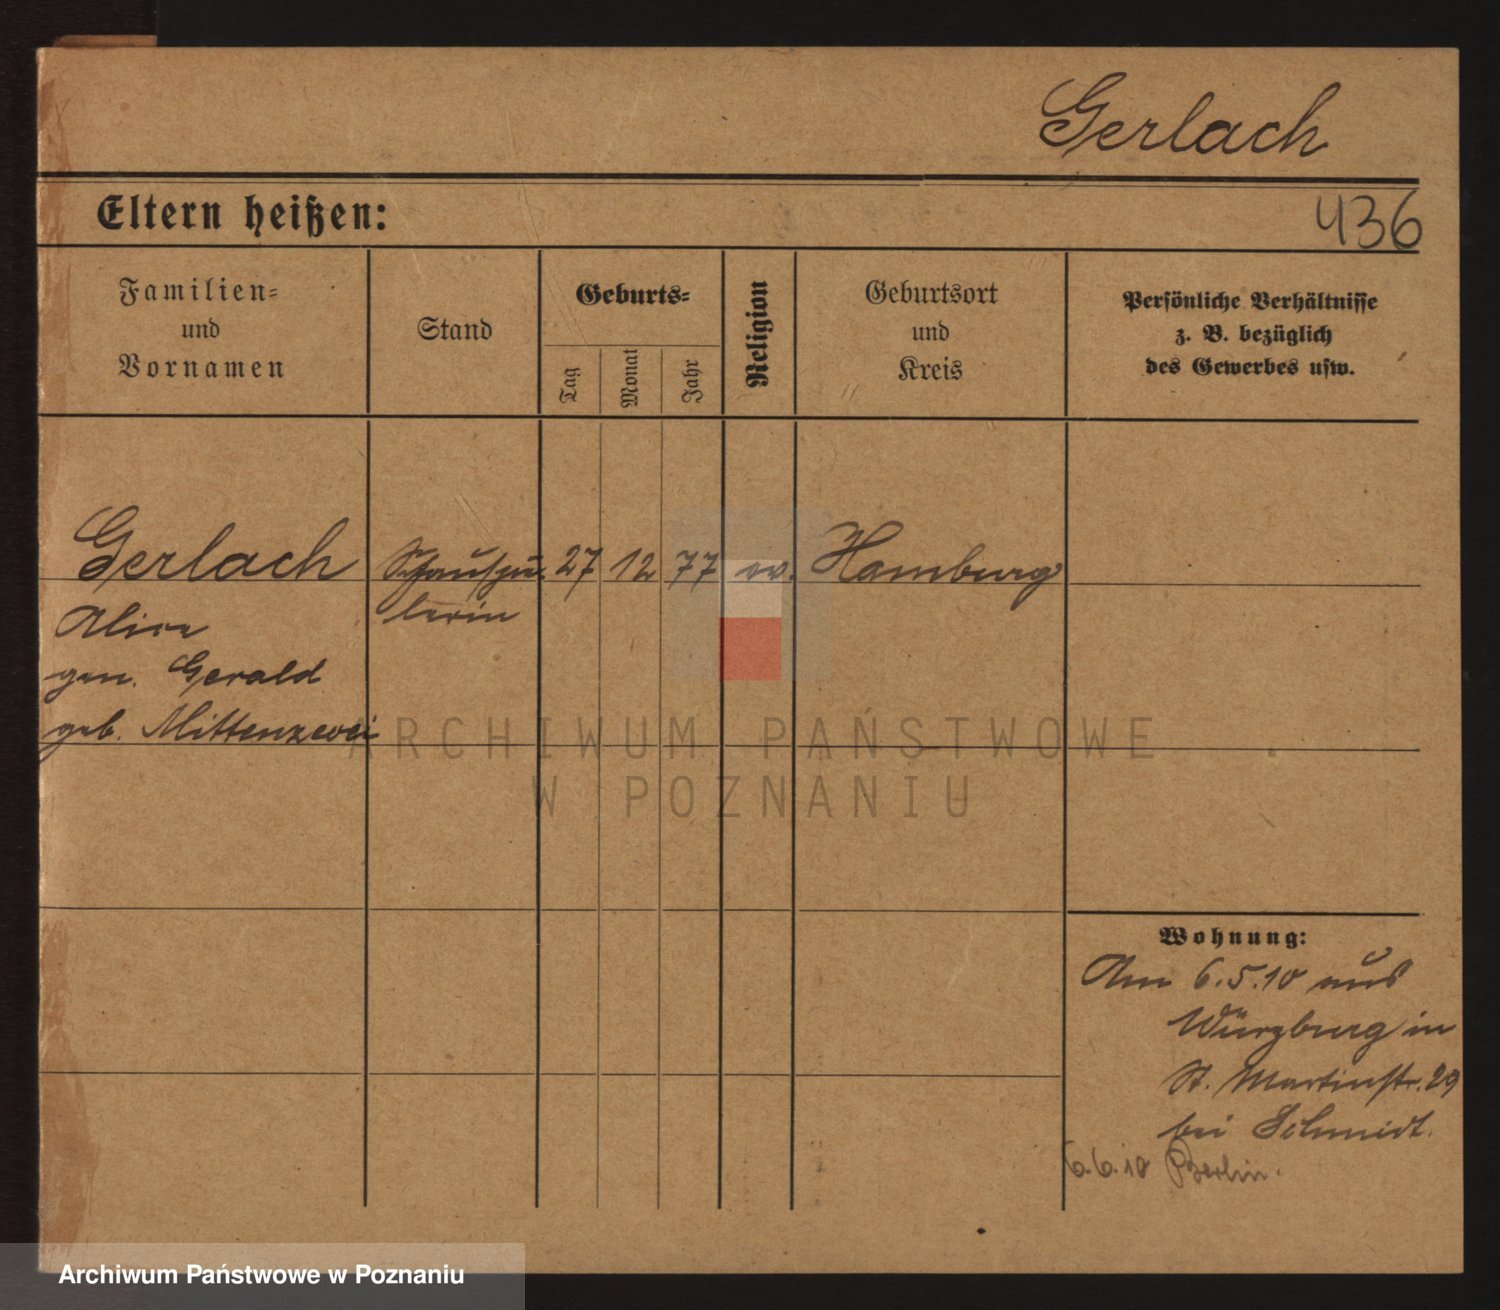 Gerlach
Eltern heißen:
436
Familien=
und
Vornamen
Stand
Geburts=
Tag
Monat
Jahr
Religion
Geburtsort
und
Kreis
Persönliche Verhältnisse
z. B. bezüglich
des Gewerbes usw.
Gerlach Schauspie- 27 12 77 ev. Hamburg
Alice lerin
gen. Gerald
geb. Mittenzwei
ARCHIWUM PAŃSTWOWE
W POZNANIU
Wohnung:
Am 6.5.10 aus
Würzburg in
St. Martinstr. 29
bei Schmidt.
6.10 Berlin.
Archiwum Państwowe w Poznaniu